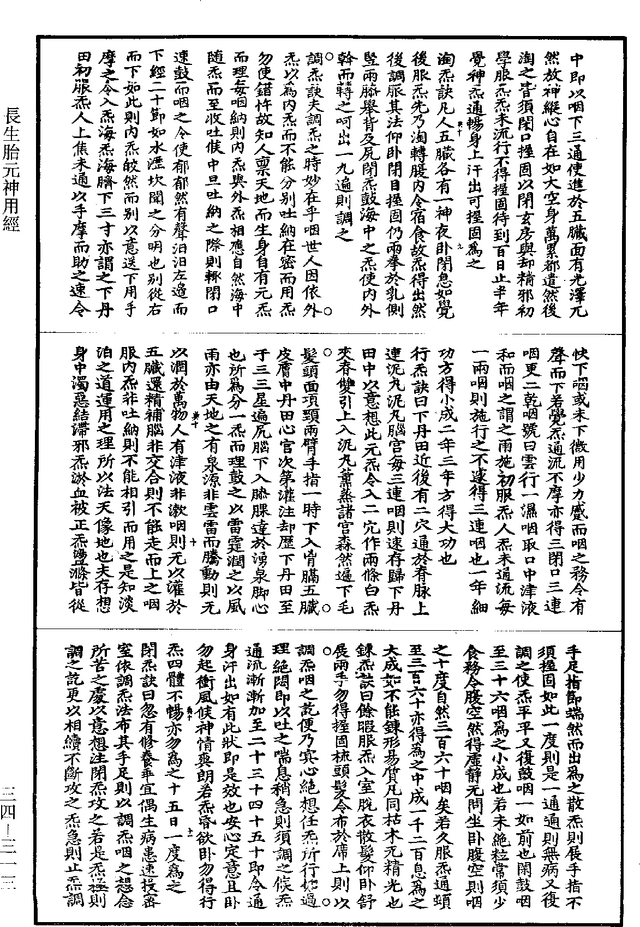 中即以咽下三通使進於五臟面有光澤元
然放神縱心自在如大空身萬累都遣然後
淘之皆須閉口握固以閉玄房與却精邪初
學服炁炁未流行不得握固待到百日止半年
覺神炁通暢身上汗出可握固為之
淘炁訣凡人五臟各有一神夜卧閉息如覺
後服炁先乃淘轉腹內令宿食故炁得出然
後調服其法仰卧閉目握固仍兩拳於乳側
竪兩膝舉背及尻閉炁鼓海中之炁使內外
斡而轉之呵出一九遍則調之
調炁訣夫調炁之時妙在乎咽世人因依外
炁以為內炁而不能分別吐納在密而用炁
勿使錯忤故知人稟天地而生身自有元炁
而理每咽納則內炁與外炁相應自然海中
隨炁而至收吐候中旦吐納之際則輒閉口
速鼓而咽之令使郁郁然有聲汩汩左邊而
下經二十節如水瀝坎聞之分明也別從右
而下如此則內炁皎然而別以意送下用手
摩之令入炁海炁海臍下三寸亦謂之下丹
田初服炁人上焦未通以手摩而助之速令
快下咽或未下微用少力感而咽之務令有
聲而下若覺炁通流不摩亦得三閉口三連
咽更二乾咽號曰雲行一濕咽取口中津液
和而咽之謂之雨施初服炁人炁未通流每
一兩咽則施行之不遂得三連咽也一年細
功方得小成二年三年方得大功也
行炁訣曰下丹田近後有二穴通於脊脉上
連泥丸泥丸腦宮每三連咽則速存歸下丹
田中以意想此元炁令入二穴作兩條白炁
夾脊雙引上入泥丸薰蒸諸宮森然遍下毛
髮頭面項頸兩臂手指一時下入胷膈五臟
皮膚中丹田心宮次第灌注却歷下丹田至
于三三星遍尻腦下入膝腂達於湧泉脚心
也所為分一炁而理鼓之以雷霆潤之以風
雨亦由天地之有泉源非雲雷而騰動則无
以潤於萬物人有津液非漱咽則无以灌於
五臟還精補腦非交合則不能走而上之咽
服內炁非吐納則不能相引而用之是知淡
泊之道運用之理所以法天像地也夫存想
身中濁惡結滯邪炁淤血被正炁盪滌皆從
手足指節端然而出為之散炁則展手指不
須握固如此一度則是一通通則無病又後
調之使炁平平又復鼓咽一如前也閉鼓咽
至三十六咽為之小成也若未絶粒常須少
食務令腹空然得虛靜无問坐卧腹空則咽
之十度自然三百六十咽矣若久服炁通頭
至三百六十亦得為之中成一千二百息為之
大成如不能鍊形易質凡同枯木无精光也
鍊炁訣曰餘暇服炁入室脫衣散髮仰卧舒
展兩手勿得握固梳頭髮令布於席上則以
調炁咽之訖便乃冥心絶想任炁所行始過
理絶悶即以吐之喘息稍急則須調之候炁
通流漸漸加至二十三十四十五十即令通
身汗出如有此狀即是效也安心定意且卧
勿起衝風候神情爽朗若炁昏欲卧勿得行
炁四體不暢亦勿為之十五日一度為之
閉炁訣曰忽有修養乖宜偶生病患速投密
室依調炁法布其手足則以調炁咽之想念
所苦之處以意想注閉炁攻之若是炁極則
調之訖更以相續不斷攻之炁急則止炁調
長生胎元神用經
三四—三一三